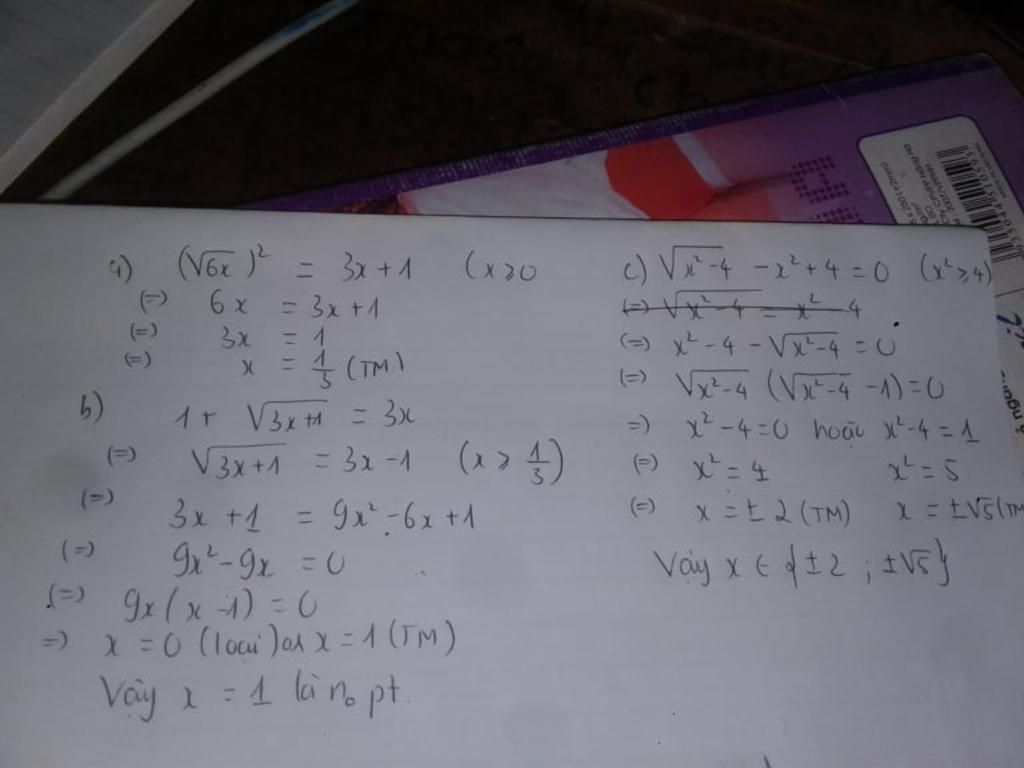 a) (√6x)² = 3x + 1 (x ≥ 0
(=) 6x = 3x + 1
(=) 3x = 1
(=) x = 1/3 (TM)
b) 1 + √3x+1 = 3x
(=) √3x+1 = 3x - 1 (x ≥ 1/3)
(=) 3x + 1 = 9x² - 6x + 1
(=) 9x² - 9x = 0
(=) 9x(x - 1) = 0
=) x = 0 (loại) or x = 1 (TM)
Vậy x = 1 là no pt.
c) √x²-4 - x² + 4 = 0 (x² ≥ 4)
(=) √x²-4 = x² - 4
(=) x² - 4 - √x²-4 = 0
(=) √x²-4 (√x²-4 - 1) = 0
=) x² - 4 = 0 hoặc x² - 4 = 1
(=) x² = 4 x² = 5
(=) x = ± 2 (TM) x = ±√5 (TM
Vậy x ∈ {±2 ; ±√5}